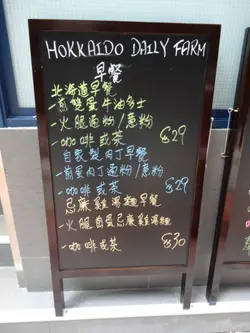 HOKKAIDO DAILY FARM
早餐
北海道早餐
-煎雙蛋牛油多士
火腿通粉/意粉
-咖啡或茶 $29
自家製肉丁早餐
-煎蛋肉丁通粉/意粉
-咖啡或茶 $29
忌廉雞湯早餐
火腿忌廉雞湯
-咖啡或茶 $30